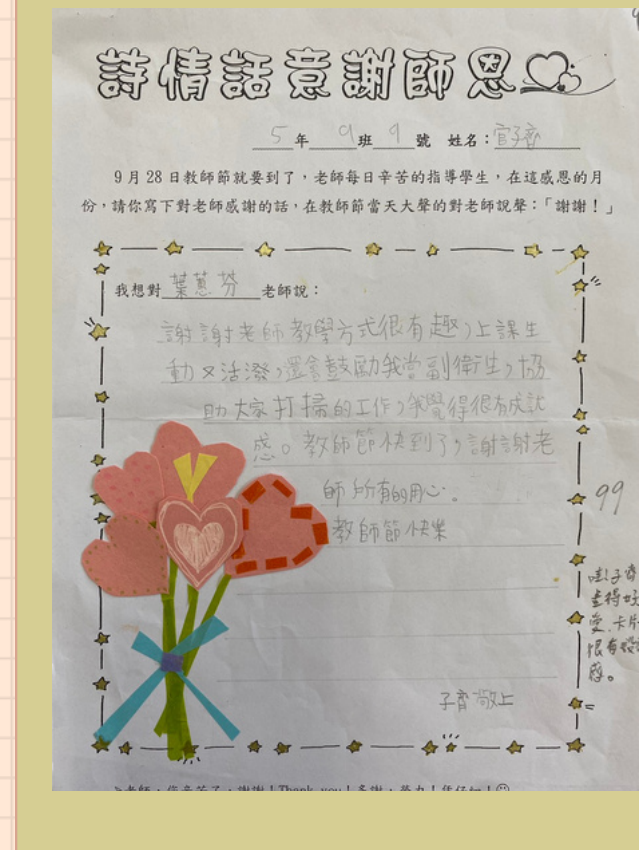 詩情話意謝師恩
5年9班9號 姓名：官子齊
9月28日教師節就要到了，老師每日辛苦的指導學生，在這感恩的月
份，請你寫下對老師感謝的話，在教師節當天大聲的對老師說聲：「謝謝！」
我想對葉蕙芬老師說：
謝謝老師教學方式很有趣，上課生
動又活潑，還會鼓勵我當副衛生，協
助大家打掃的工作，我覺得很有成就
感。教師節快到了，謝謝老
師所有的用心。
教師節快樂
99
哇！子齊
畫得好
愛、卡片
很有設
感。
子齊敬上